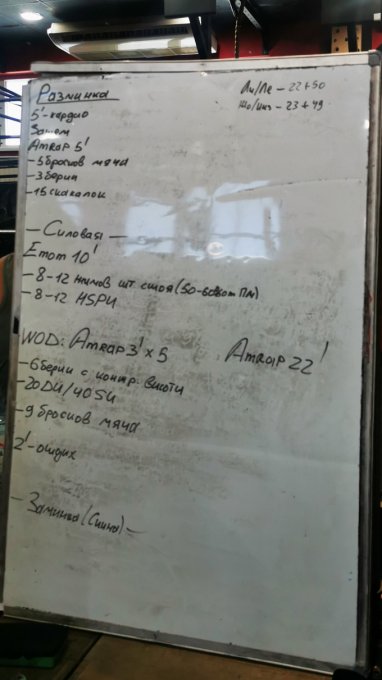 Разминка
5'-кардио
Затем
AMRAP 5'
-5 бросков мяча
-3 берпи
-15 скакалок
- Силовая -
Emom 10'
-8-12 жимов шт стоя (50-60% от ПМ)
-8-12 HSPU
WOD: AMRAP 3' x 5
-6 берпи с контр. высоты
-20DU/40SU
-9 бросков мяча
2'-отдых
- Заминка (Спина) -
22+50
23+49
AMRAP 22'